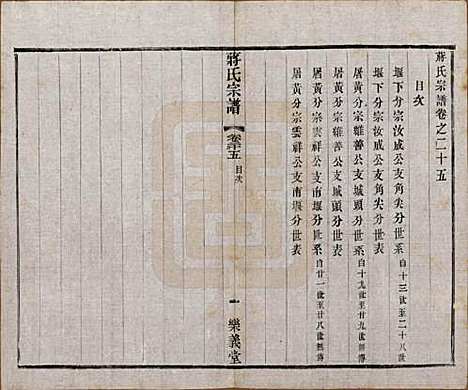 蔣氏宗譜卷之二十五
目次
堰下分宗汝成公支角尖分世系自十三世至二十八世
堰下分宗汝成公支角尖分世表
屠黃分宗維善公支城頭分世系自十九世至廿九世
屠黃分宗維善公支城頭分世表
屠黃分宗雲祥公支南堰分世系自廿一世至廿八世
屠黃分宗雲祥公支南堰分世表
蔣氏宗譜
卷二十五
目次
一
樂義堂